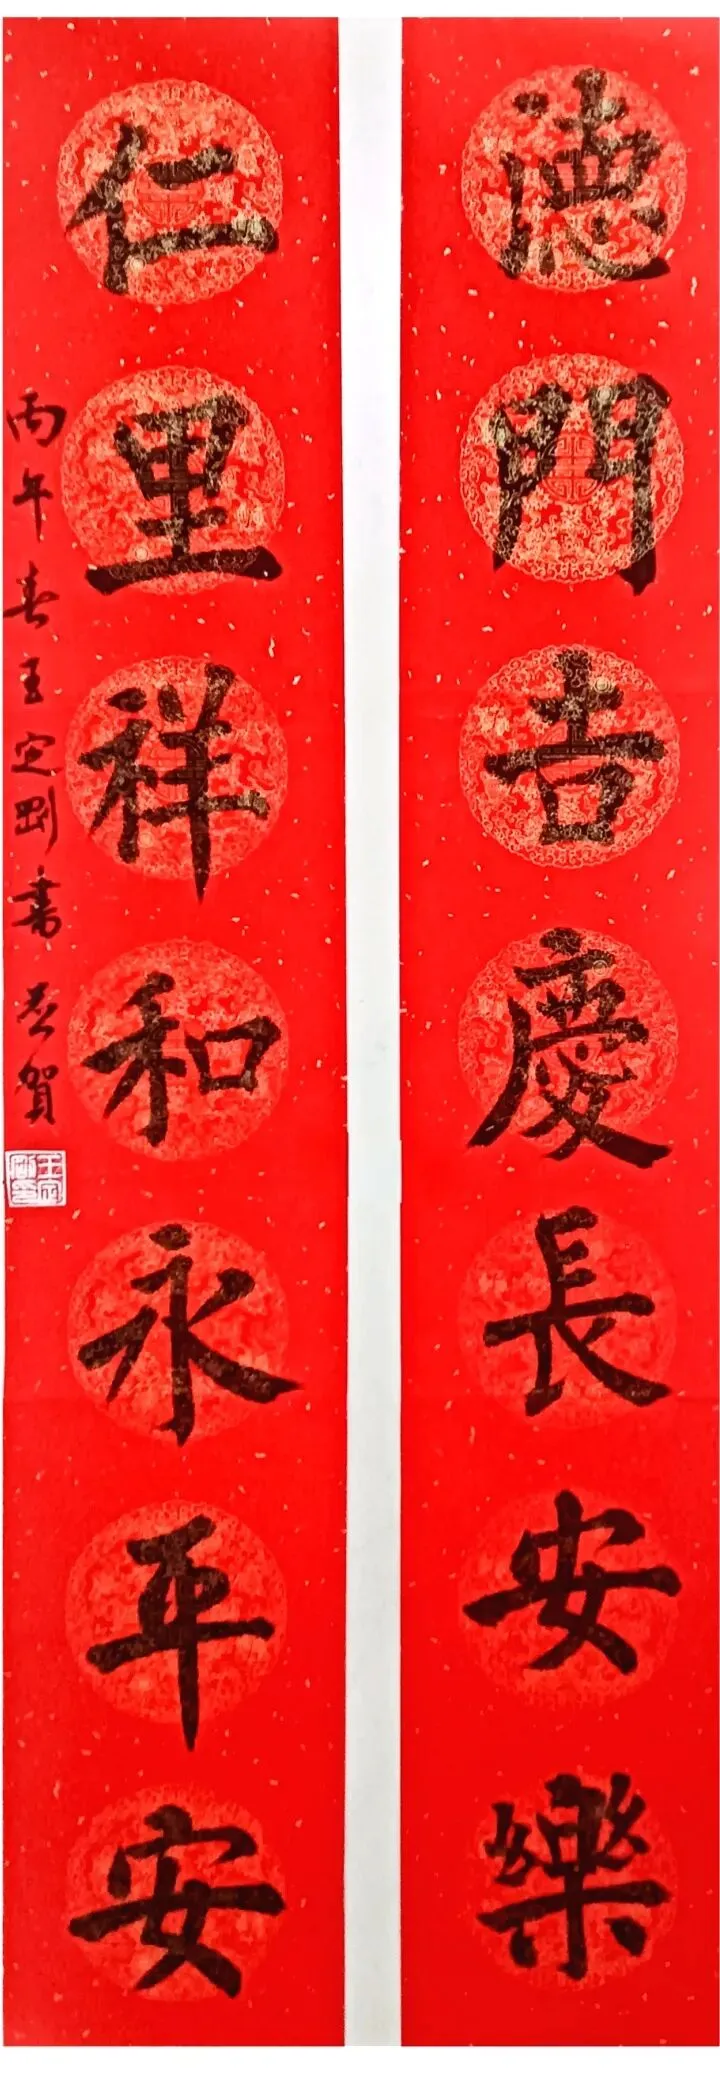 德門吉慶長安樂
仁里祥和永平安
丙午春王定剛書 恭賀
王定剛印